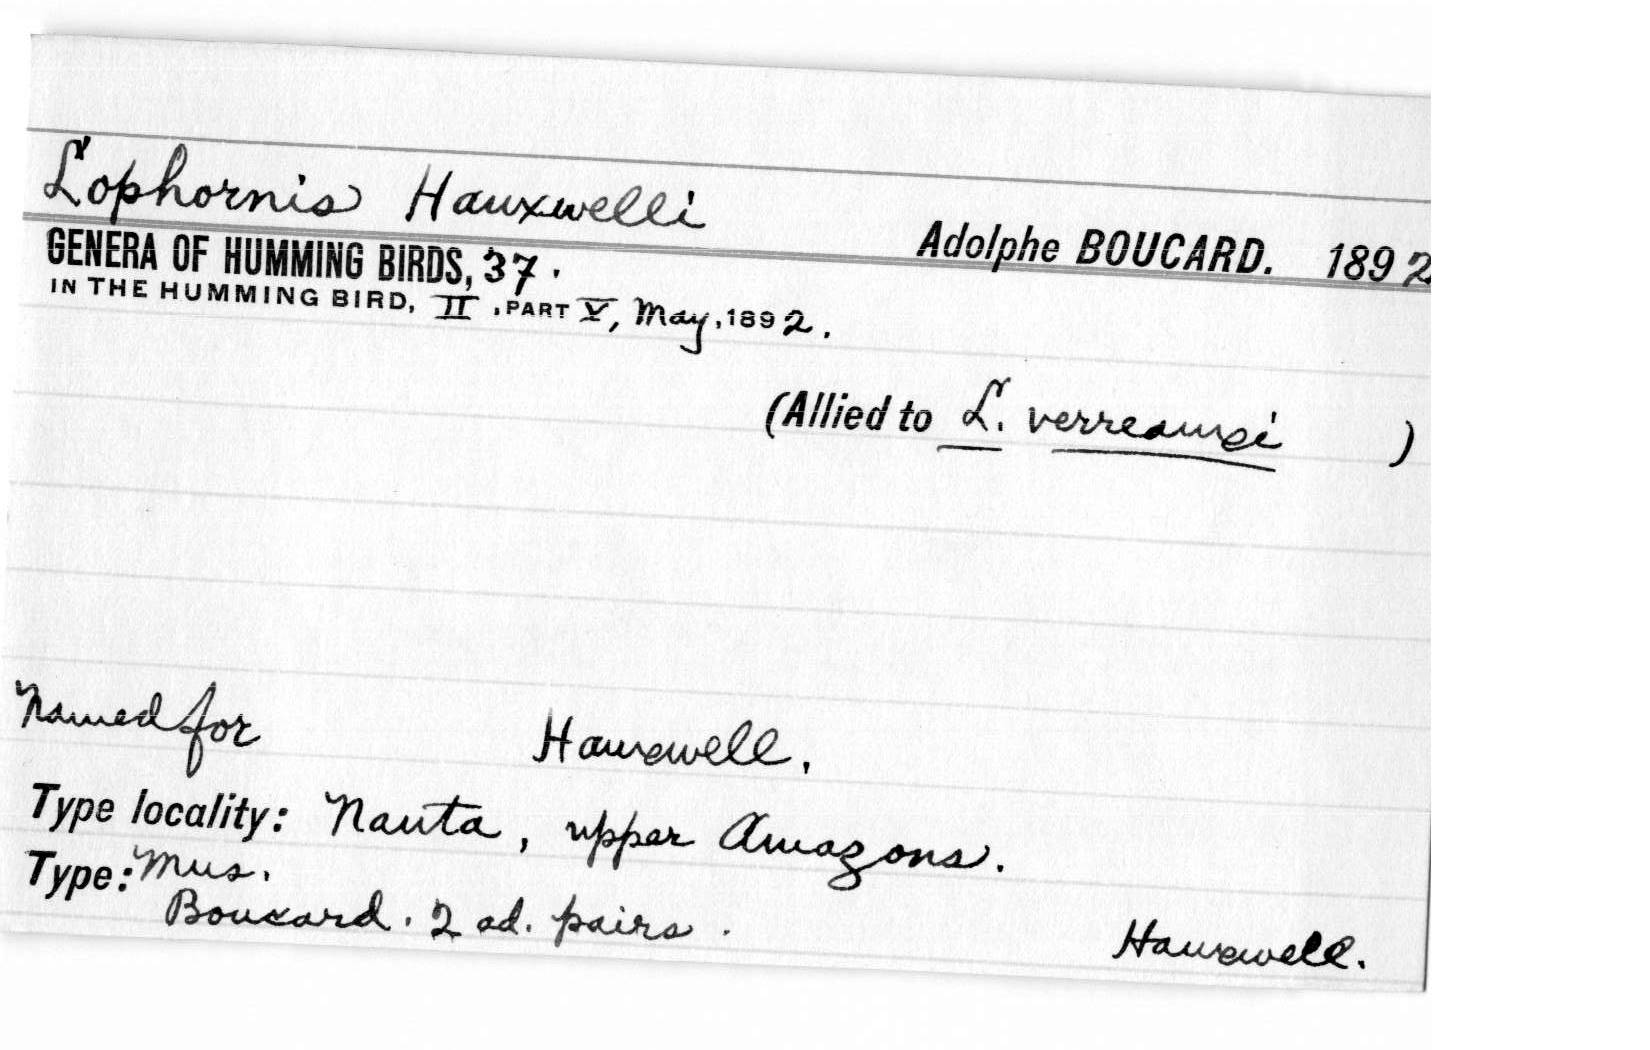 Lophornis Hauxwelli
GENERA OF HUMMING BIRDS, 37. Adolphe BOUCARD. 1892
IN THE HUMMING BIRD, II, PART V, May, 1892.
(Allied to L. verreauxi )
Named for Hauxwell.
Type locality: Nauta, upper Amazons.
Type: Mus.
Boucard. 2 ad. pairs. Hauxwell.